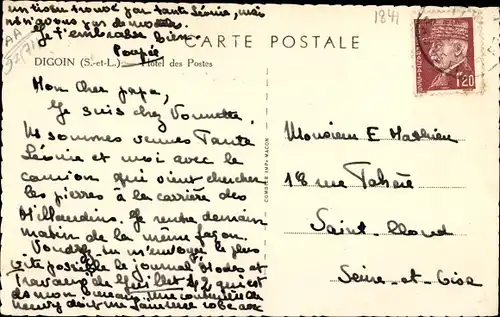 un tissu trouvé par tante Léonie, mais
ns n'avons pas de modèle.
Je t'embrasse bien.
Poupée
1841
CARTE POSTALE
DIGOIN (S.-et-L.) — Hôtel des Postes
1F20
Mon Cher papa,
Je suis chez Vonnette.
Ns sommes venues Tante
Léonie et moi avec le
camion qui vient chercher
les pierres à la carrière des
Je rentre demain
matin de la même façon.
Voudrais-tu m'envoyer le plus
vite possible le journal Modes et
Travaux de Juillet 42 qui est
ds mon
COMBIER IMP. MACON
Monsieur E Mathieu
18 rue
Saint Cloud
Seine-et-Oise